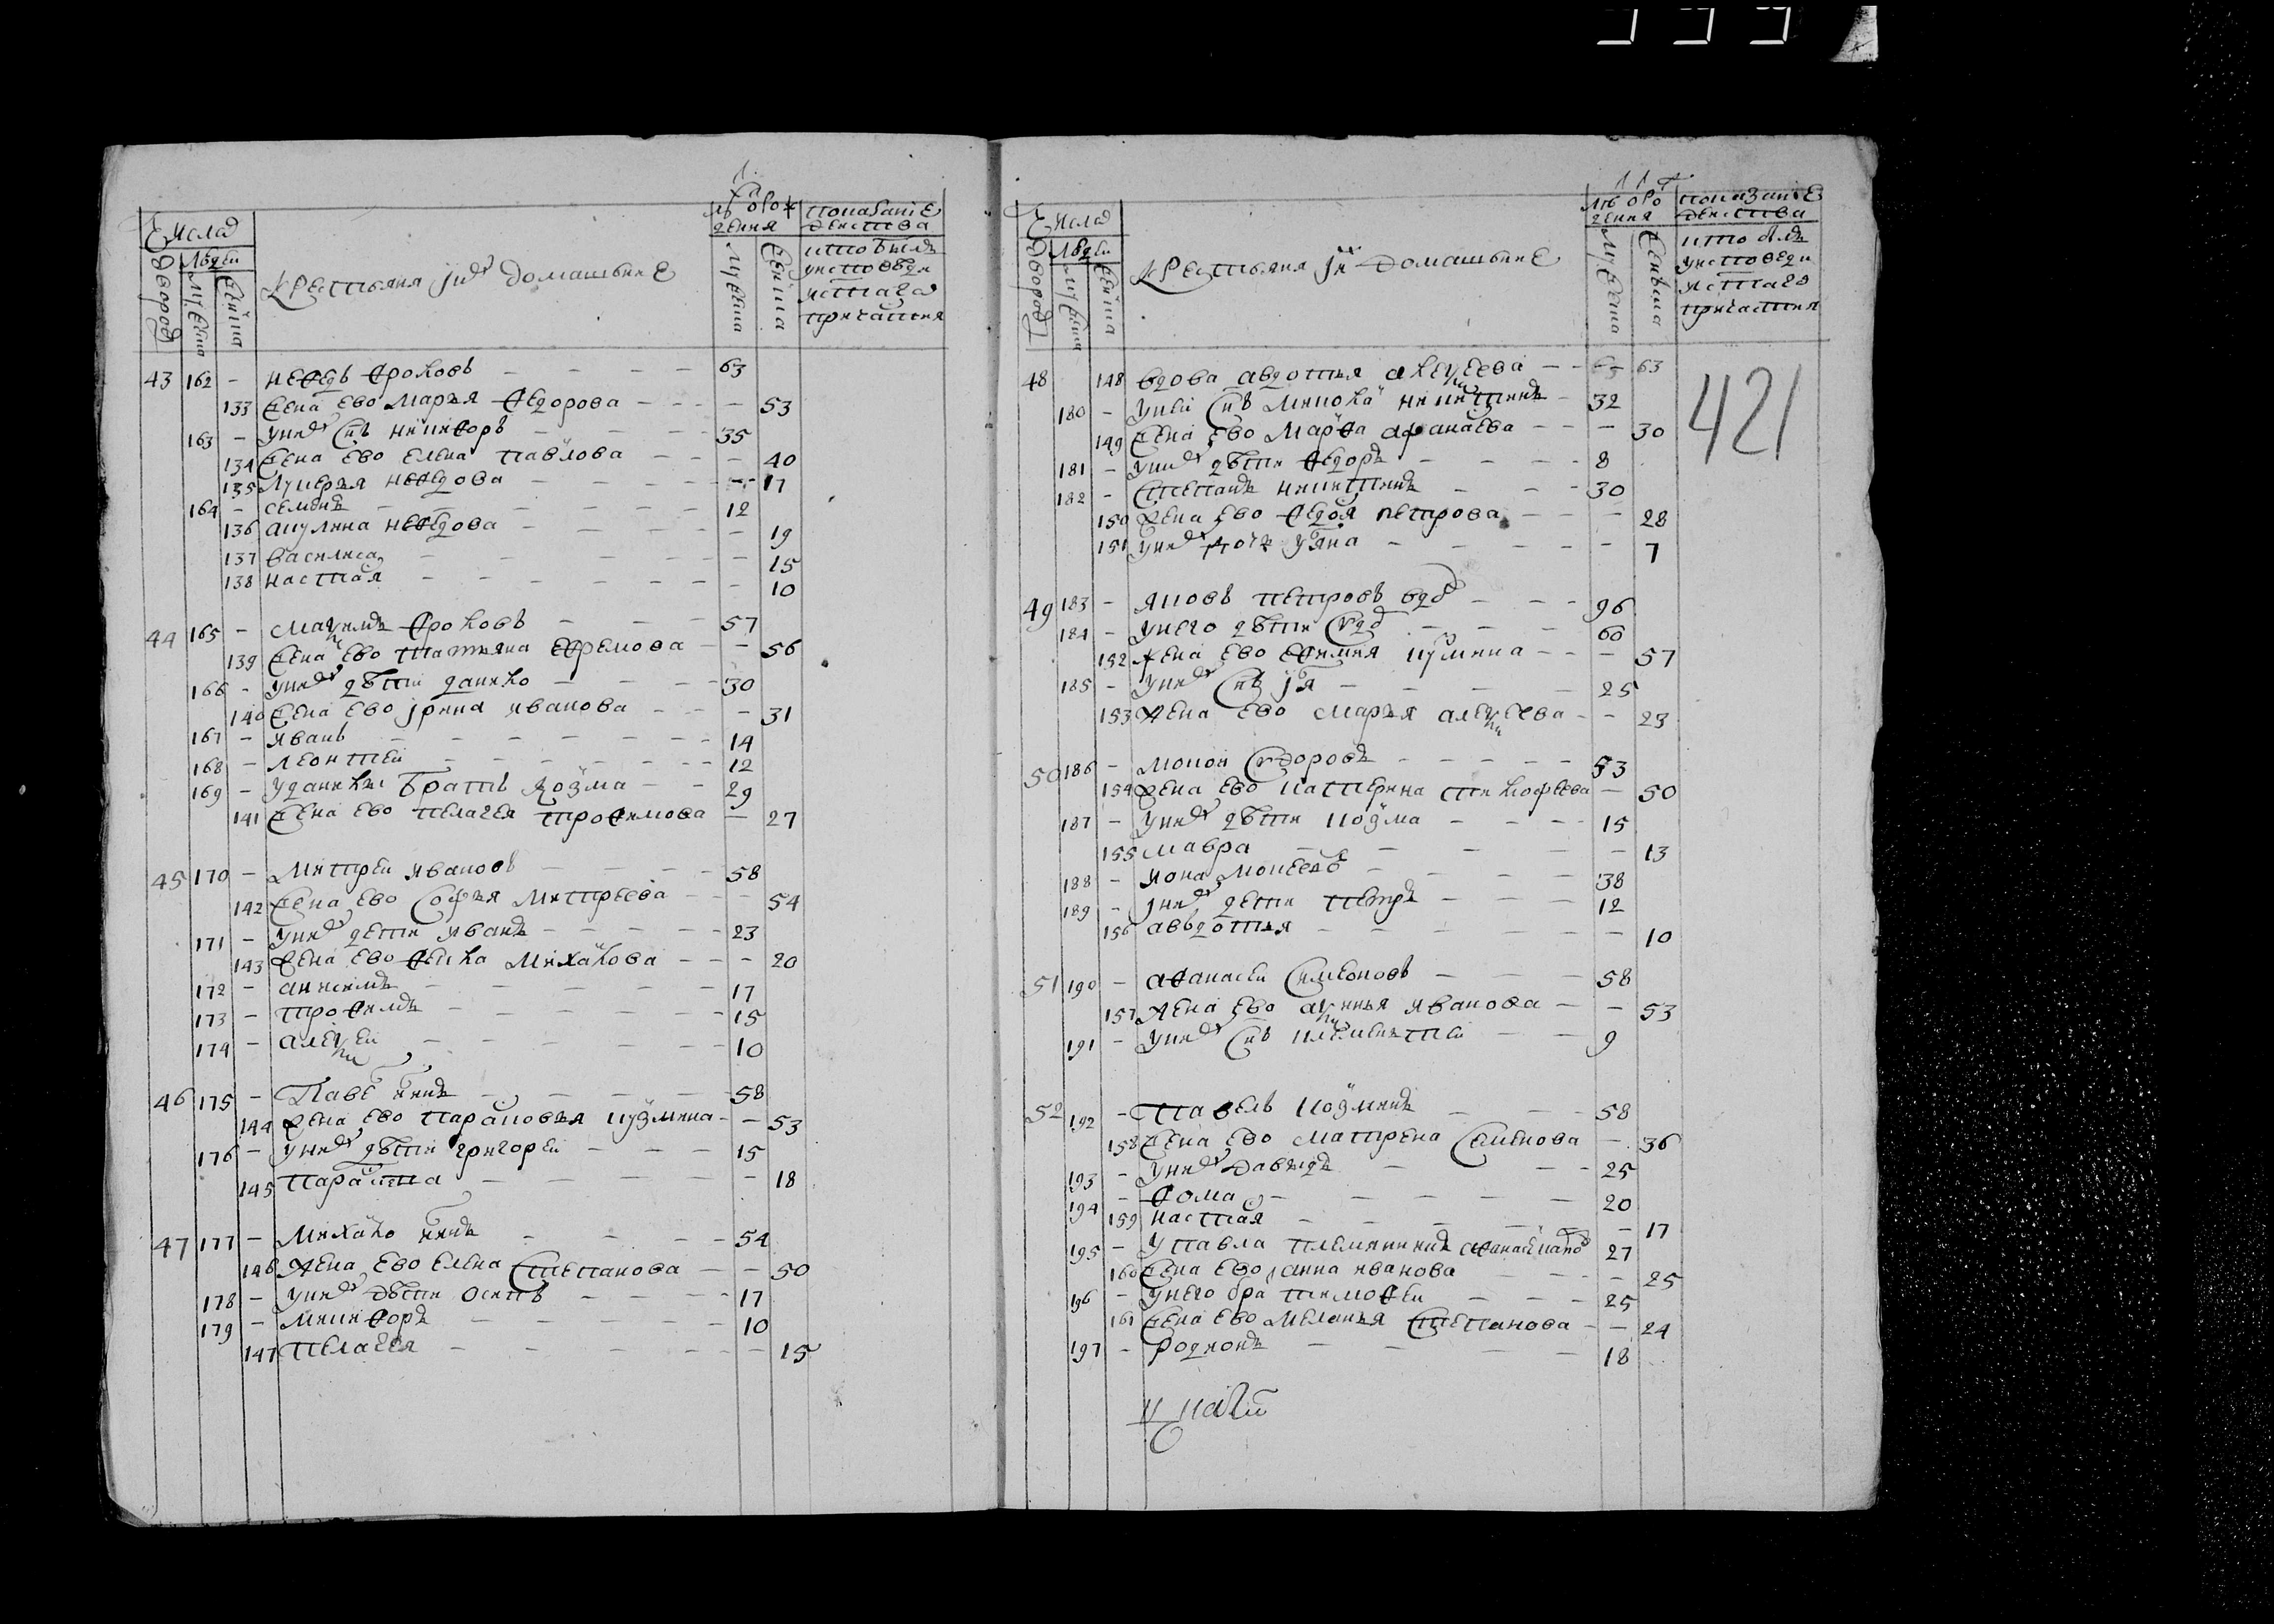 Числа
Людеи
Дворов
Муска
Женска
Крестьяня и их домашние
Лѣ от рож
дения
Муска
Женска
показание
действа
кто былъ
у исповеди
и стаго
причастия
43 162 - неѳедъ Ѳроловъ - - - - 63
133 жена ево Марья Ѳедорова - - - - 53
163 - у них снъ никиѳоръ - - - - 35
134 жена ево Елена павлова - - - 40
135 Лукерья неѳедова - - - - - 17
164 - семенъ - - - - - 12
136 акулина неѳедова - - - - - 19
137 василиса - - - - - 15
138 настая - - - - - - - 10
44 165 - Макимъ Ѳроловъ - - - 57
139 жена ево татьяна Еѳремова - - 56
166 - у них дѣти данило - - - - 30
140 жена ево Ирина иванова - - - 31
167 - иванъ - - - - - - 14
168 - леонтеи - - - - - - 12
169 - у данилы братъ козма - - 29
141 жена ево пелагея троѳимова - 27
45 170 - Митреи ивановъ - - - - 58
142 жена ево Соѳья Митреева - - - 54
171 - у них дети иванъ - - - - - 23
143 жена ево Ѳекла Михалова - - - 20
172 - анисимъ - - - - - 17
173 - троѳимъ - - - - - - 15
174 - алекеи - - - - - - 10
46 175 - Паве - - - - - 58
144 жена ево парасковья кузмина - - 53
176 - у них дѣти григореи - - - 15
145 параска - - - - - 18
47 177 - Михало - - - - 54
146 жена ево Елена Степанова - - 50
178 - у них дѣти осипъ - - - - 17
179 - Никиѳоръ - - - - - 10
147 пелагея - - - - - - 15
Числа
Людеи
Дворов
Муска
Женска
Крестьяня и их домашние
Лѣ от ро
ждения
Муска
Женска
показание
действа
кто былъ
у исповеди
и стаго
причастия
48 148 вдова авдотья алекеева - - 63
421
180 - у неи снъ Микола никитинъ - 32
149 жена ево Марѳа аѳанаева - - - 30
181 - у них дѣти Ѳедоръ - - - - 8
182 - Степанъ никитинъ - - - 30
150 жена ево Ѳедоя петрова - - - 28
151 у них дочь уяна - - - - - 7
49 183 - яковъ петровъ вдо - - - 96
184 - у него дѣти Сидо - - - 60
152 жена ево Еѳимия кузмина - - - 57
185 - у них снъ Иия - - - - 25
153 жена ево марья алекеева - - 23
50 186 - мокеи Сидоровъ - - - - - 53
154 жена ево катерина тимоѳеева - 50
187 - у них дѣти козма - - - - 15
155 мавра - - - - - 13
188 - иона мокеевъ - - - - - 38
189 - у них дети петръ - - - 12
156 авъдотья - - - - - - 10
51 190 - аѳанасеи Симеоновъ - - - 58
157 жена ево акинья иванова - - 53
191 - у них снъ климентеи - - 9
52 192 - Павелъ козминъ - - - 58
158 жена ево матрена Семенова - 36
193 - у них давыдъ - - - 25
194 - Ѳома - - - - - - 20
159 настая - - - - - 17
195 - у павла племянникъ 27
160 жена ево анна иванова - - - 25
196 - у него бра тимоѳеи - - - 25
161 жена ево меланья Степанова - - 24
197 - родионъ - - - - 18